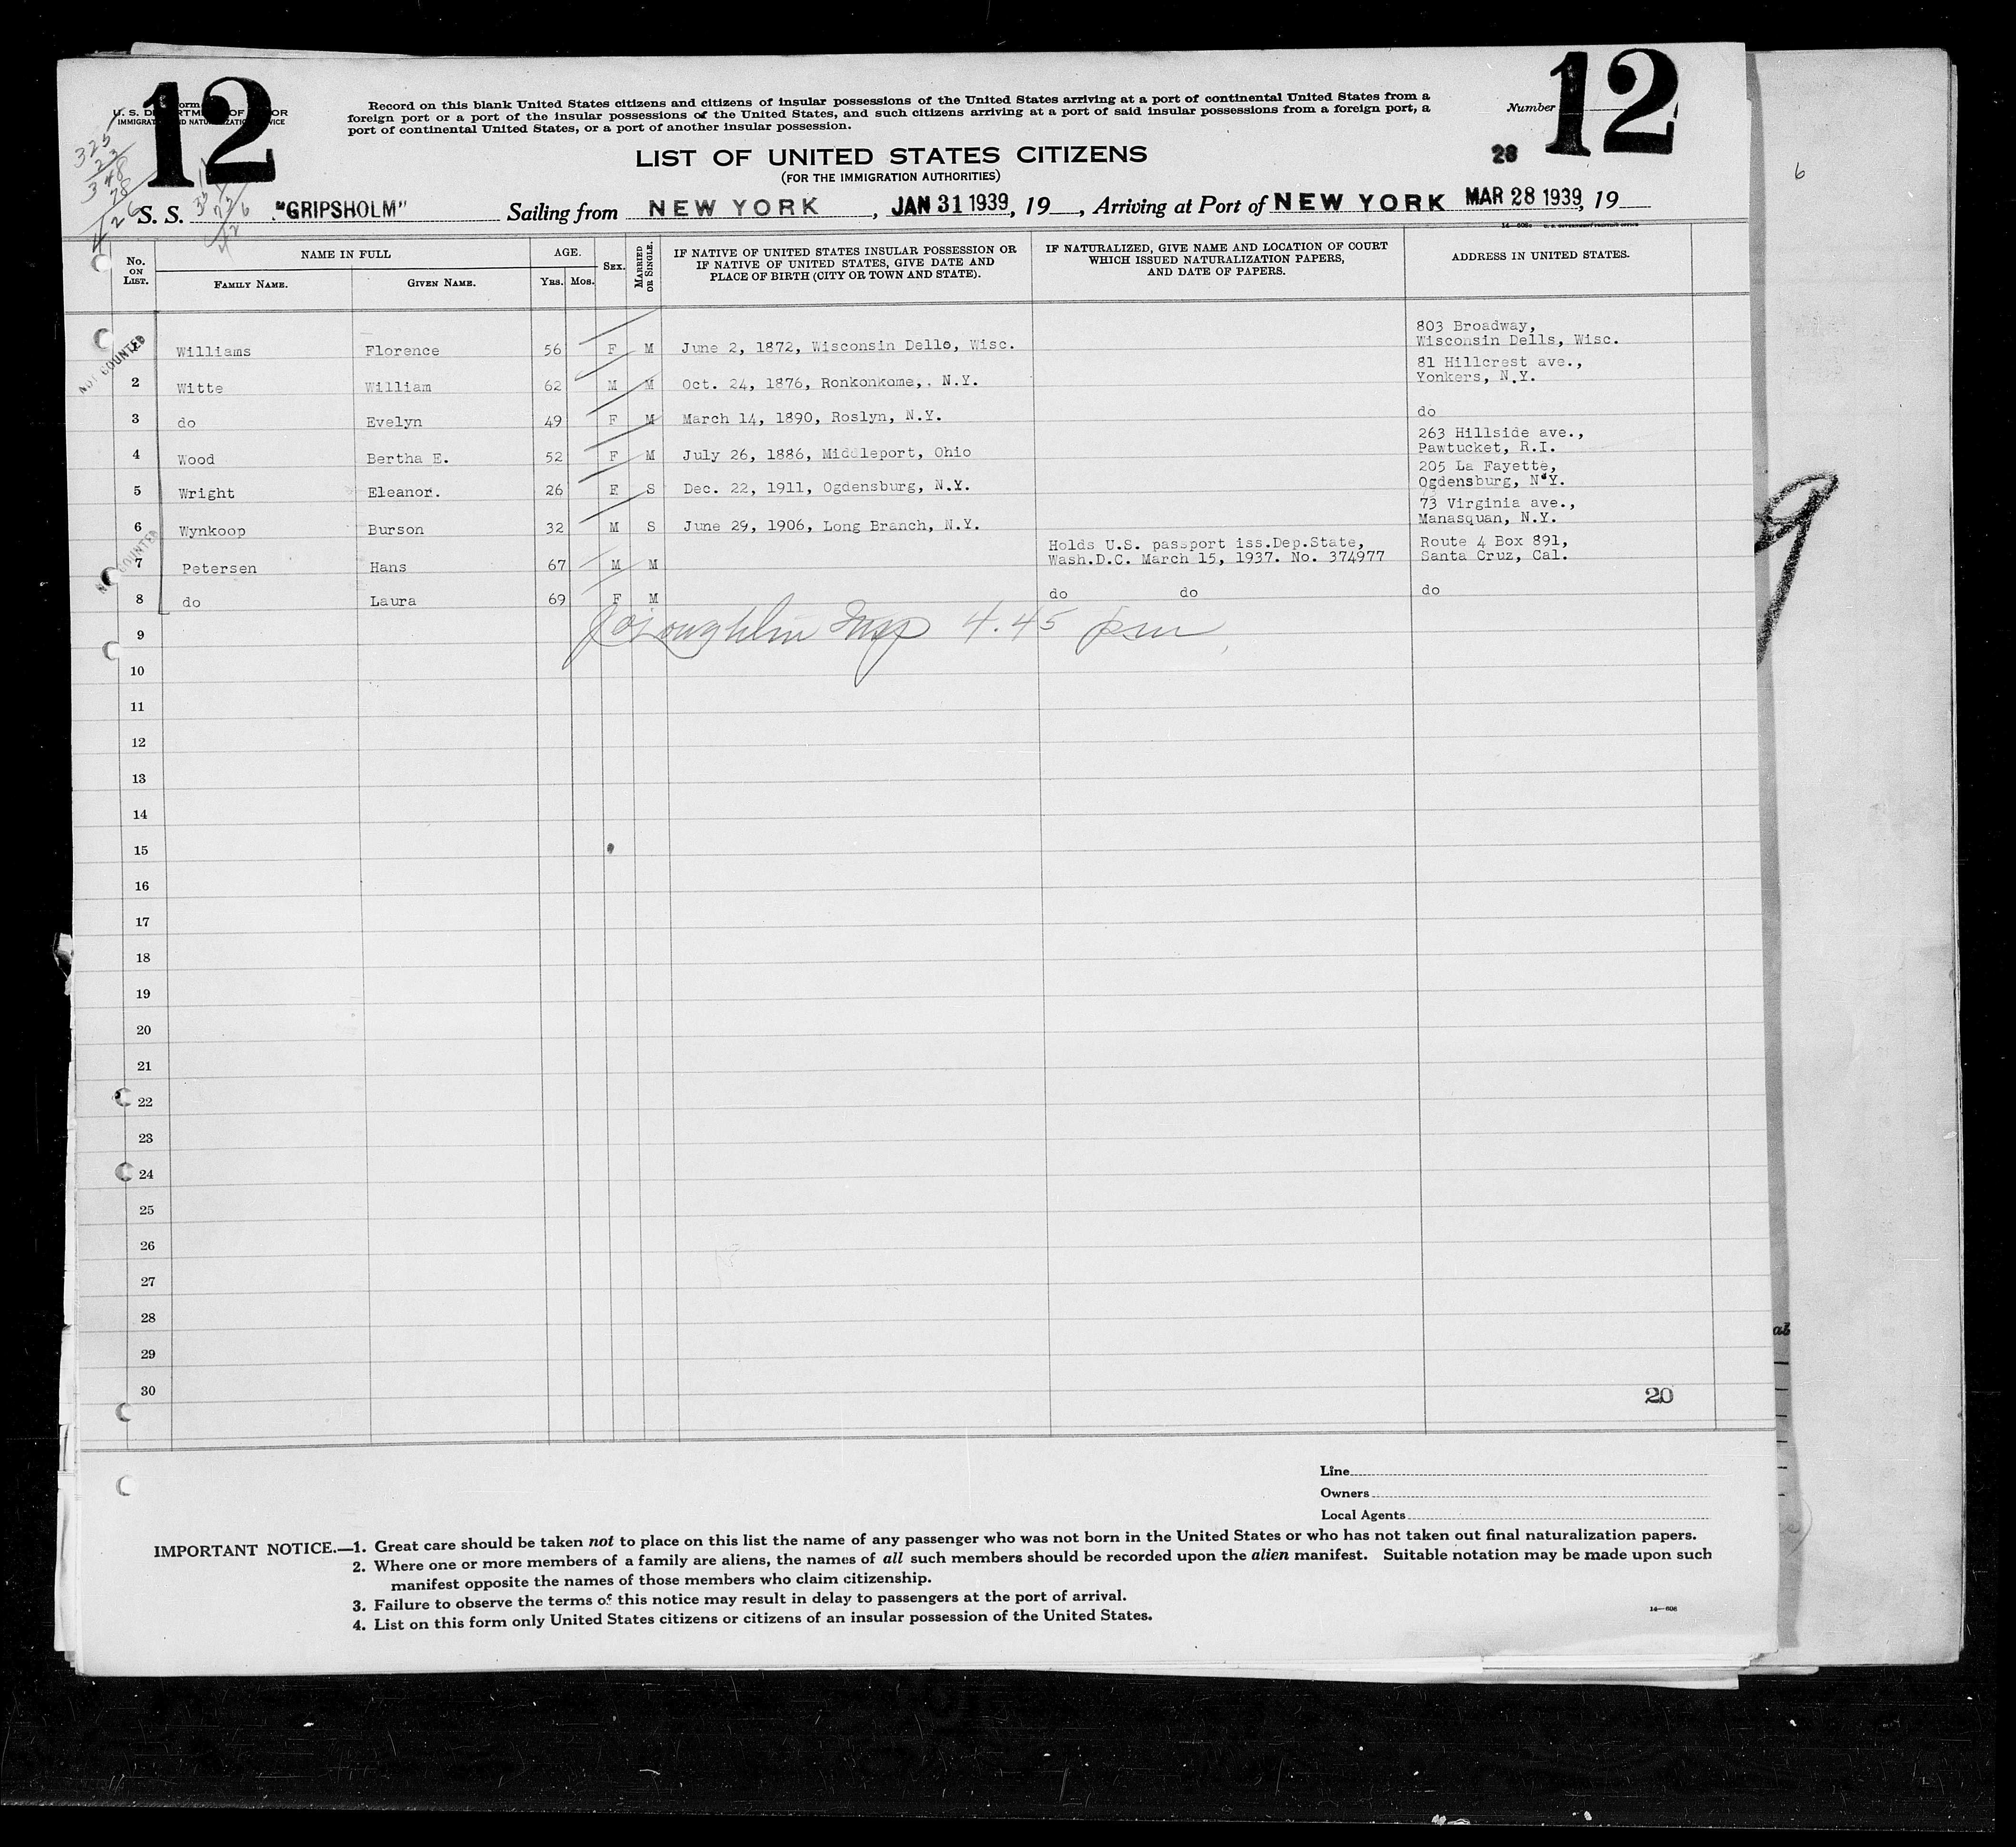 12
12
Form
U. S. DEPARTMENT OF LABOR
IMMIGRATION AND NATURALIZATION SERVICE
Record on this blank United States citizens and citizens of insular possessions of the United States arriving at a port of continental United States from a
foreign port or a port of the insular possessions of the United States, and such citizens arriving at a port of said insular possessions from a foreign port, a
port of continental United States, or a port of another insular possession.
Number
LIST OF UNITED STATES CITIZENS
(FOR THE IMMIGRATION AUTHORITIES)
28
6
325
23
348
78
426
S. S. "GRIPSHOLM" Sailing from NEW YORK, JAN 31 1939, 19__, Arriving at Port of NEW YORK MAR 28 1939, 19__
No. ON LIST. NAME IN FULL AGE. SEX. MARRIED OR SINGLE. IF NATIVE OF UNITED STATES INSULAR POSSESSION OR IF NATIVE OF UNITED STATES, GIVE DATE AND PLACE OF BIRTH (CITY OR TOWN AND STATE). IF NATURALIZED, GIVE NAME AND LOCATION OF COURT WHICH ISSUED NATURALIZATION PAPERS, AND DATE OF PAPERS. ADDRESS IN UNITED STATES.
FAMILY NAME. GIVEN NAME. YRS. MOS.
NOT COUNTED
803 Broadway,
Williams Florence 56 F M June 2, 1872, Wisconsin Dello, Wisc. Wisconsin Dells, Wisc.
81 Hillcrest ave.,
2 Witte William 62 M M Oct. 24, 1876, Ronkonkome,. N.Y. Yonkers, N.Y.
3 do Evelyn 49 F M March 14, 1890, Roslyn, N.Y. do
263 Hillside ave.,
4 Wood Bertha E. 52 F M July 26, 1886, Middleport, Ohio Pawtucket, R.I.
205 La Fayette,
5 Wright Eleanor. 26 F S Dec. 22, 1911, Ogdensburg, N.Y. Ogdensburg, N.Y.
73 Virginia ave.,
6 Wynkoop Burson 32 M S June 29, 1906, Long Branch, N.Y. Manasquan, N.Y.
NOT COUNTED
Holds U.S. passport iss.Dep.State, Route 4 Box 891,
7 Petersen Hans 67 M M Wash.D.C. March 15, 1937. No. 374977 Santa Cruz, Cal.
8 do Laura 69 F M do do do
4.45 pm
9
9
10
11
12
13
14
15
16
17
18
19
20
21
22
23
24
25
26
27
28
29
30
20
Line
Owners
Local Agents
IMPORTANT NOTICE.—1. Great care should be taken not to place on this list the name of any passenger who was not born in the United States or who has not taken out final naturalization papers.
2. Where one or more members of a family are aliens, the names of all such members should be recorded upon the alien manifest. Suitable notation may be made upon such
manifest opposite the names of those members who claim citizenship.
3. Failure to observe the terms of this notice may result in delay to passengers at the port of arrival.
4. List on this form only United States citizens or citizens of an insular possession of the United States.
14—606